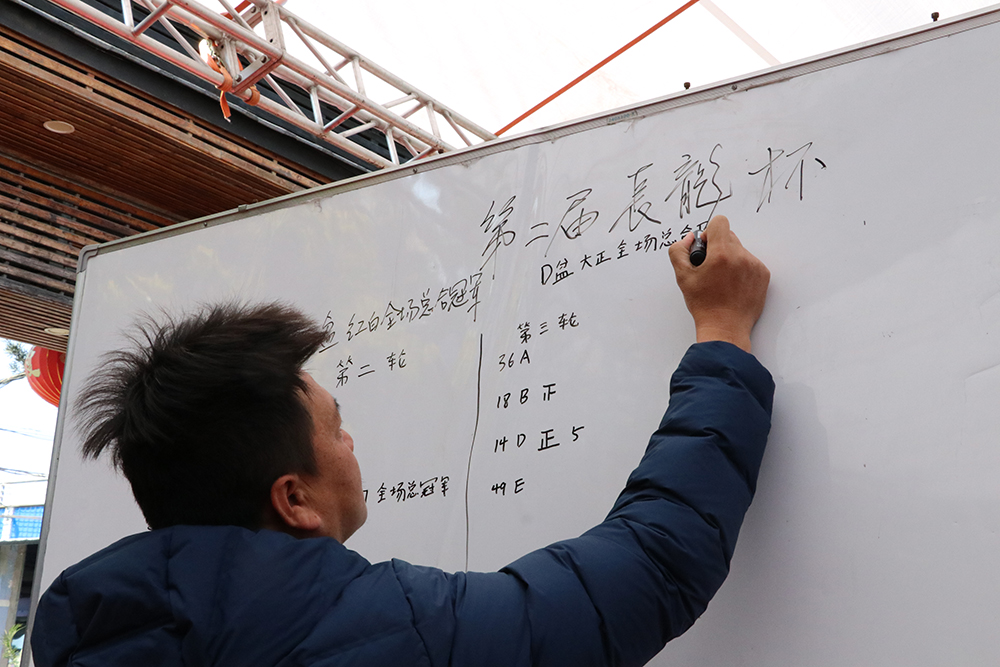 第二届長龍杯
D盆 大正全场总合
盆 红白全场总合冠军
第二轮
第三轮
36A
18 B 正
14 D 正 5
全场总冠军
49 E